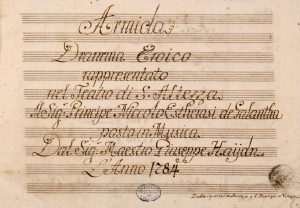 Armida
Dramma Eroico
rappresentato
nel Teatro di S. Altezza
Il Sig: Principe Niccolò Esterhasi de Galantha
posto in Musica
Dal Sig: Maestro Giuseppe Haydn
L'Anno 1784